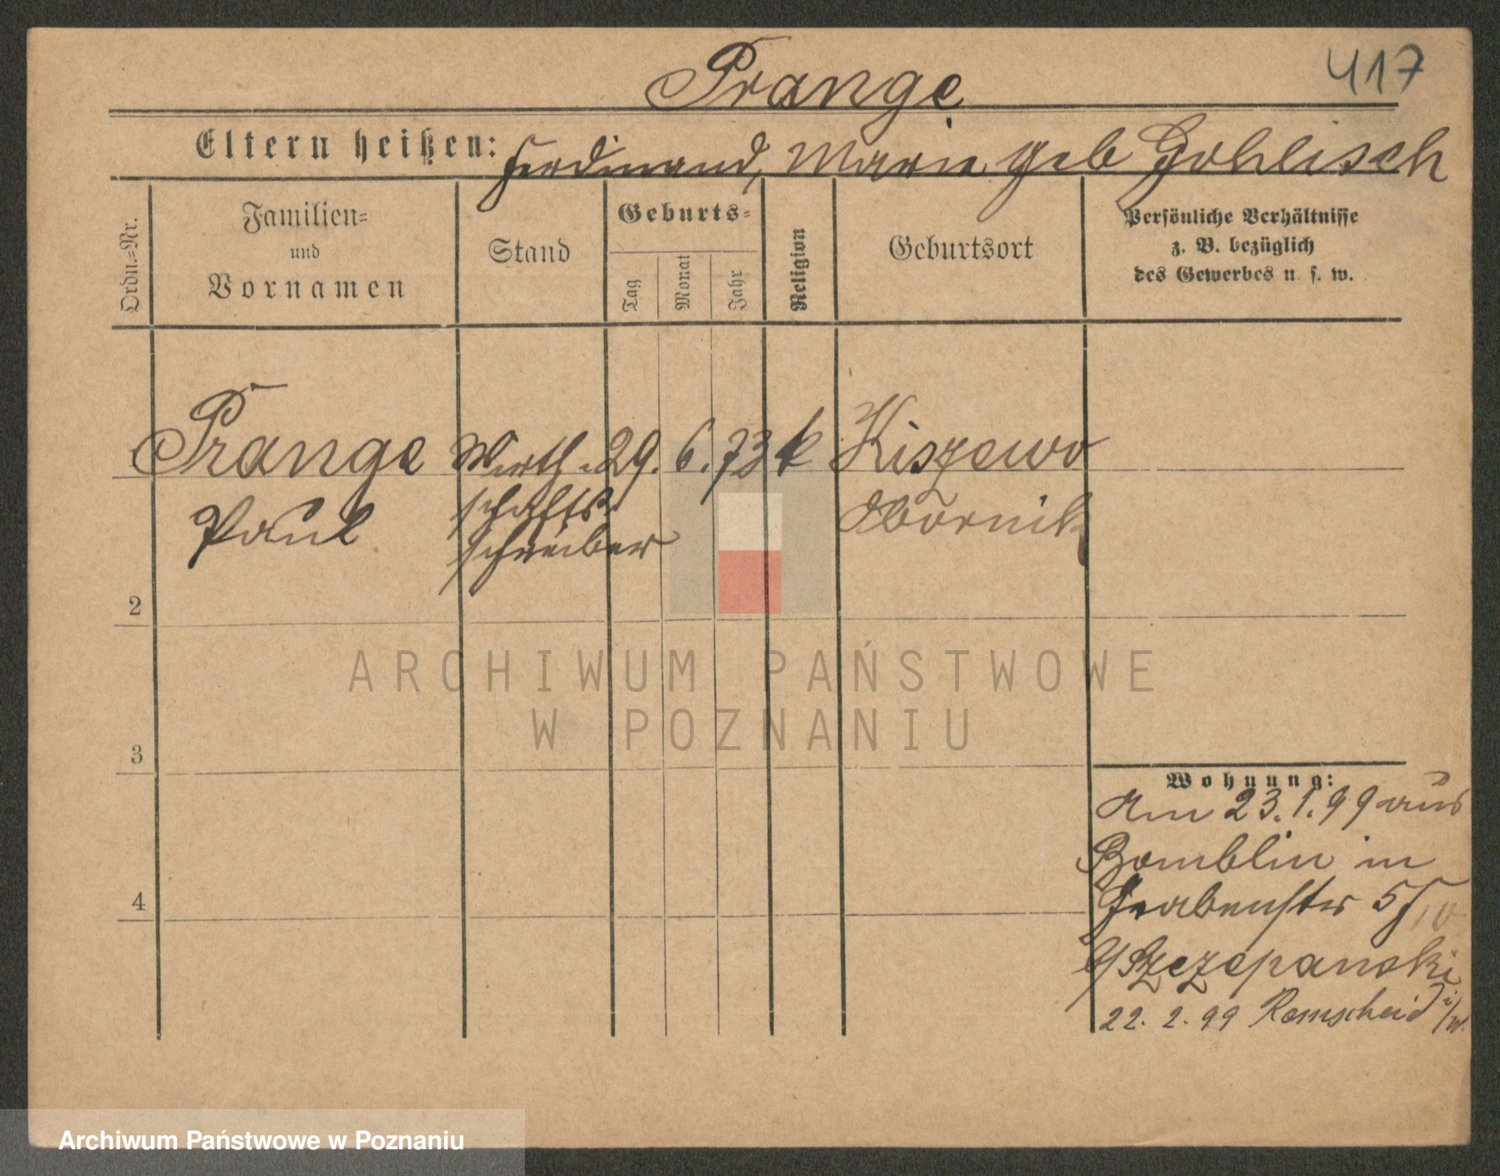 417
Prange
Eltern heißen: Ferdinand, Marie geb Gohlisch
Ordn.-Nr.
Familien-
und
Vornamen
Stand
Geburts-
Tag
Monat
Jahr
Religion
Geburtsort
Persönliche Verhältnisse
z. B. bezüglich
des Gewerbes u. s. w.
Prange Wirth- 29. 6. 73 k Kiszewo
Paul schafts Obornik
schreiber
2
ARCHIWUM PAŃSTWOWE
W POZNANIU
3
Wohnung:
Am 23.1.99 aus
Bomblin in
Grabenstr 5/10
b/Szczepanski
22. 2. 99 Remscheid
4
Archiwum Państwowe w Poznaniu